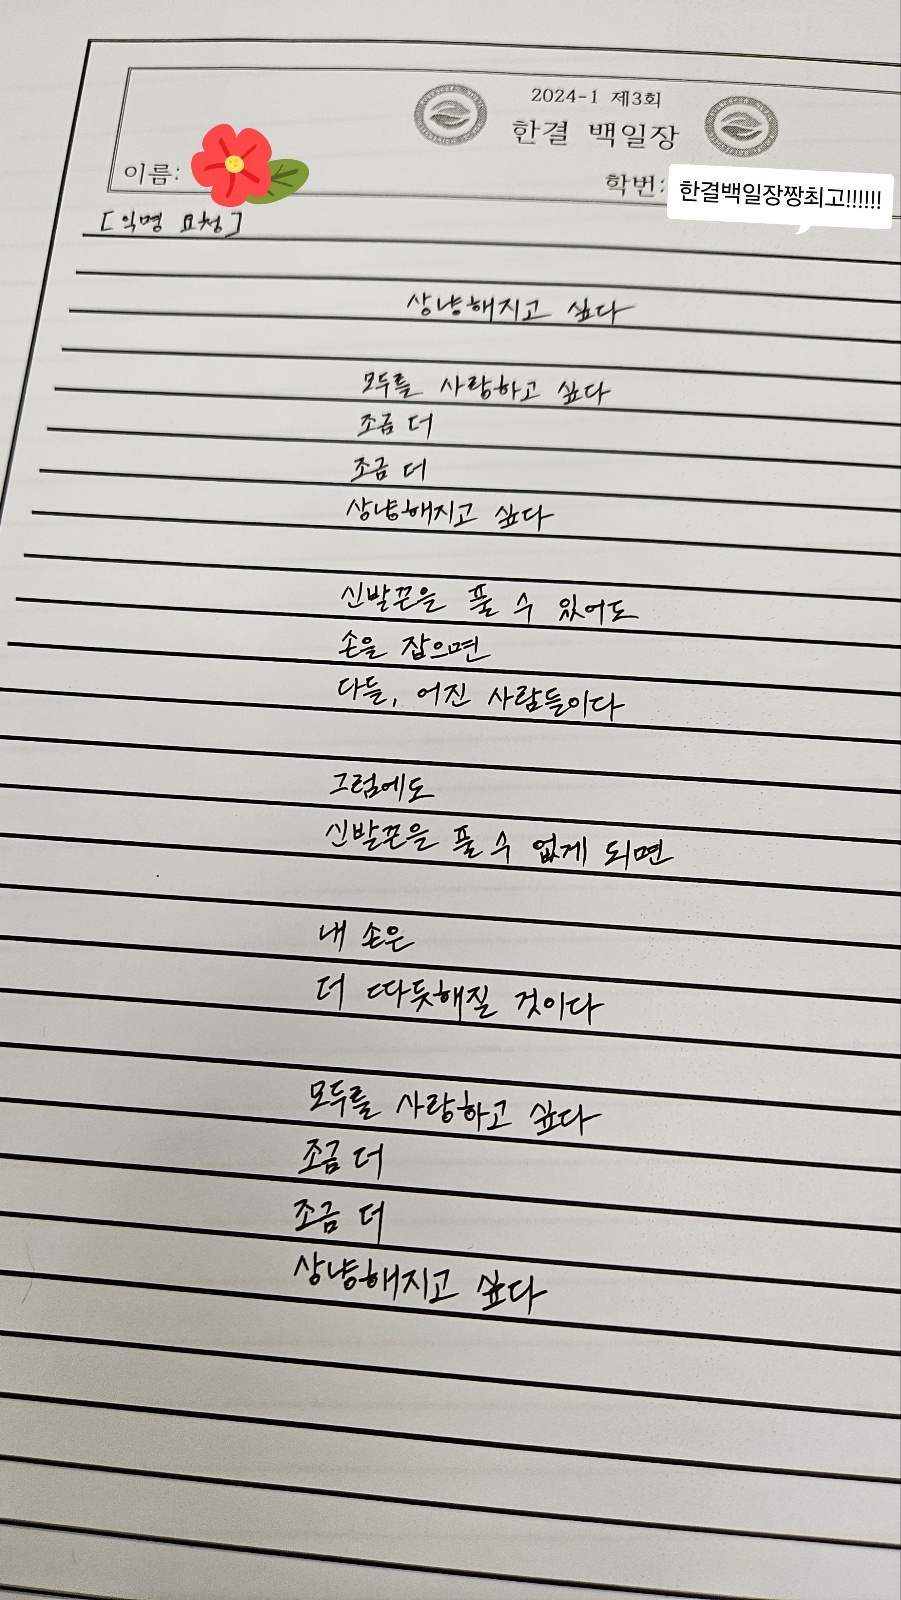 2024-1 제3회
한결 백일장
이름:
학번:
한결백일장짱최고!!!!!!
[익명 요청]
상냥해지고 싶다
모두를 사랑하고 싶다
조금 더
조금 더
상냥해지고 싶다
신발끈을 풀 수 있어도
손을 잡으면
다들, 어진 사람들이다
그럼에도
신발끈을 풀 수 없게 되면
내 손은
더 따듯해질 것이다
모두를 사랑하고 싶다
조금 더
조금 더
상냥해지고 싶다